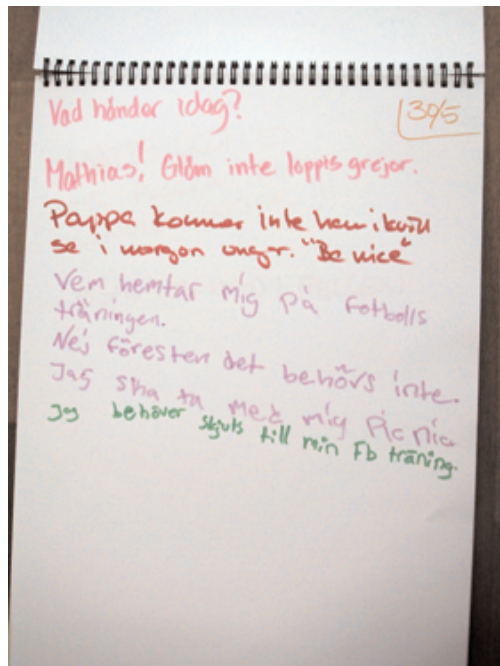 Vad händer idag?
30/5
Mathias! Glöm inte loppis grejor.
Pappa kommer inte hem ikväll
se i morgon ungar. "Be nice"
Vem hemtar mig på fotbolls
träningen.
Nej föresten det behövs inte.
Jag ska ta med mig Picnic
Jag behöver skjuts till min Fb träning.